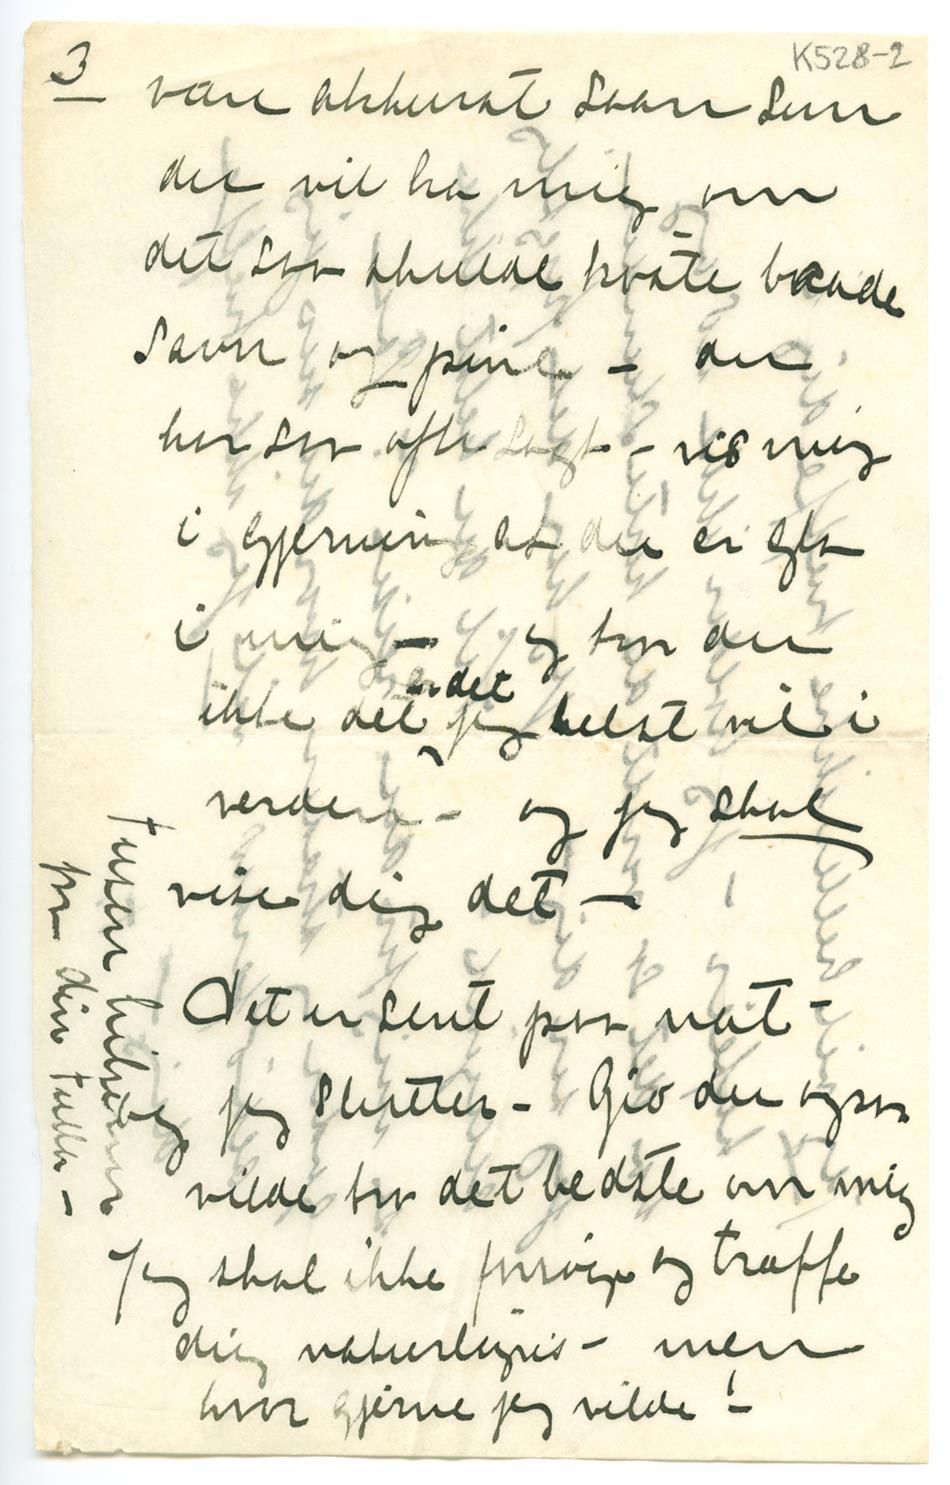 3
K528-2
være akkurat saan som
du vil ha mig om
det saa skulde koste baade
savn og pine – du
har saa ofte sagt – vis mig
i gjerning at du er gla
i mig – og tror du
ikke det er det jeg helst vil i
verden – og jeg skal
vise dig det –
Det er sent paa nat –
jeg slutter – Gid du ogsaa
vilde tro det bedste om mig
Jeg skal ikke forsøge og træffe
dig naturligvis – men
hvor gjerne jeg vilde! –
Tusen hilsener
fra din Tulla –